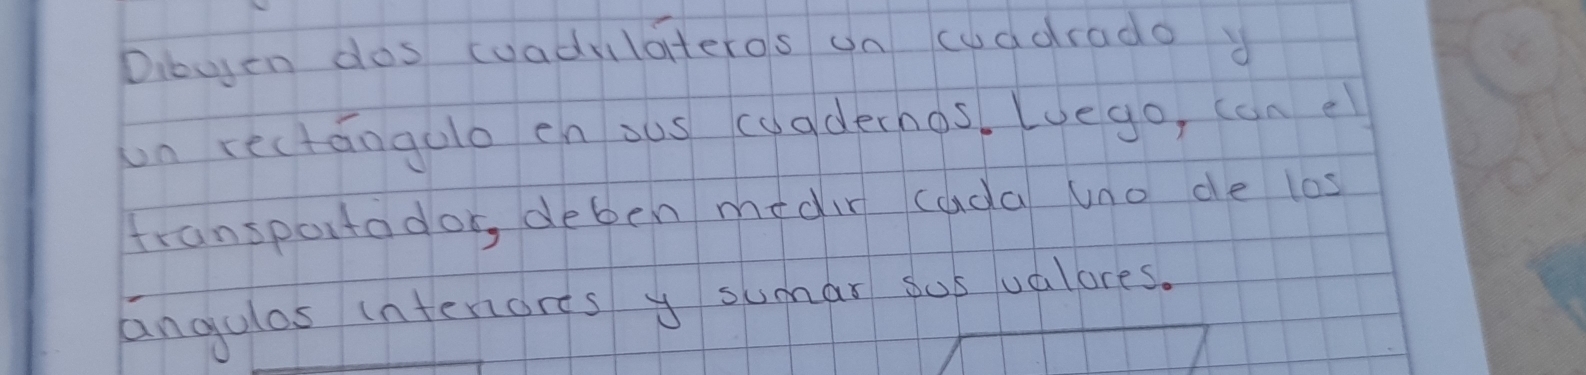 Dibujen dos cuadriláteros un cuadrado y
un rectángulo en sus cuadernos. Luego, con el
transportador, deben medir cada uno de los
ángulos interiores y sumar sus valores.